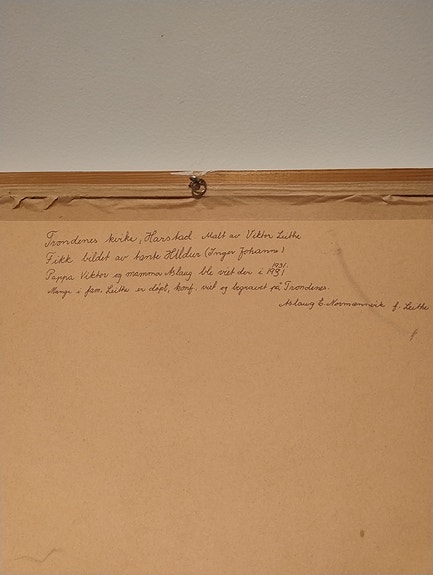 Trondenes kirke, Harstad Malt av Viktor Leithe
Fikk bildet av tante Hildur (Inger Johanne)
Pappa Viktor og mamma Aslaug ble viet der i 1931
1931.
Mange i fam. Leithe er døpt, konf, viet og begravet på Trondenes.
Aslaug E. Normannvik f. Leithe